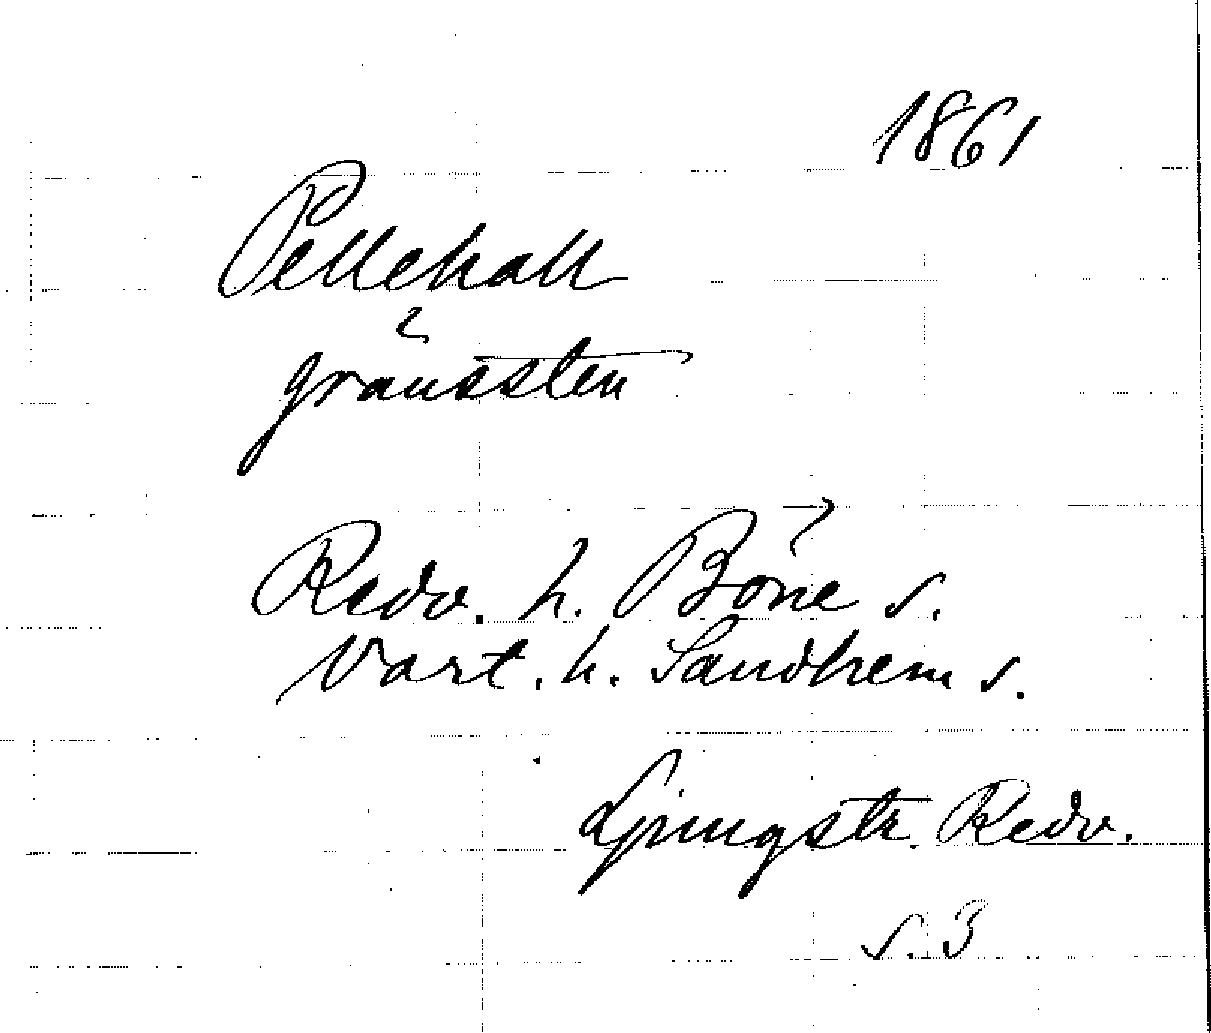 1861
Pellehall
gränssten
Redv. h. Böne s.
Vart. h. Sandhem s.
Ljungstr. Redv.
s. 3